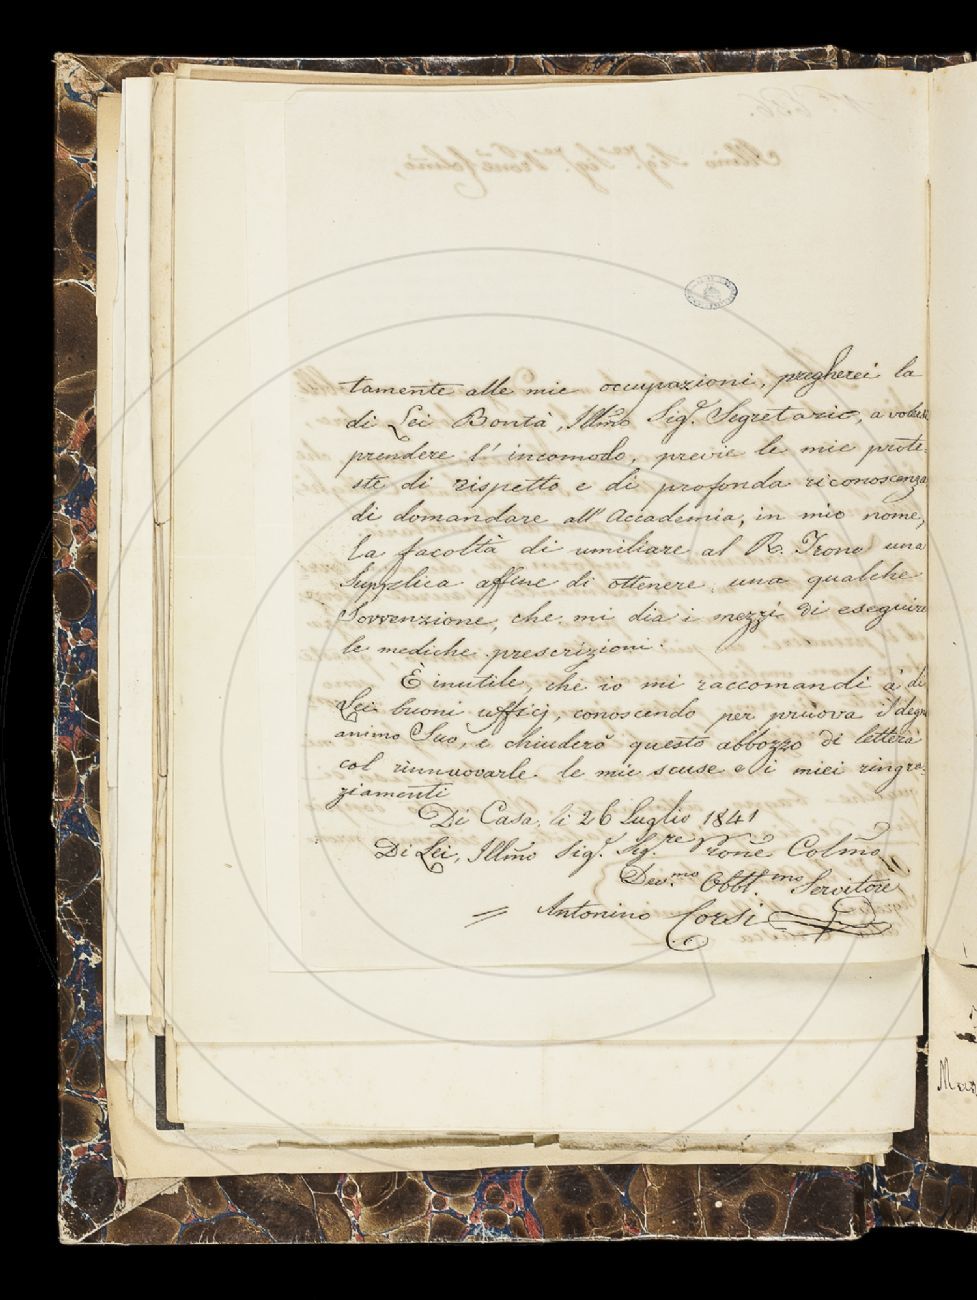 tamente alle mie occupazioni, pregherei la
di Lei Bontà, Illm̃o Sig.r Segretario, a volersi
prendere l' incomodo, previe le mie prote-
ste di rispetto e di profonda riconoscenza
di domandare all' Accademia, in mio nome,
la facoltà di umiliare al R. Trono una
Supplica affine di ottenere una qualche
Sovvenzione, che mi dia i mezzi di eseguire
le mediche prescrizioni.
È inutile, che io mi raccomandi a' di
Lei buoni ufficj, conoscendo per pruova il degno
animo Suo, e chiuderò questo abbozzo di lettera
col rinnuovarle le mie scuse e i miei ringra-
ziamenti
Di Casa li 26 Luglio 1841
Di Lei, Illm̃o Sig.r Sig.re Proñe Colm̃o
Dev.mo Obbl.mo Servitore
Antonino Corsi